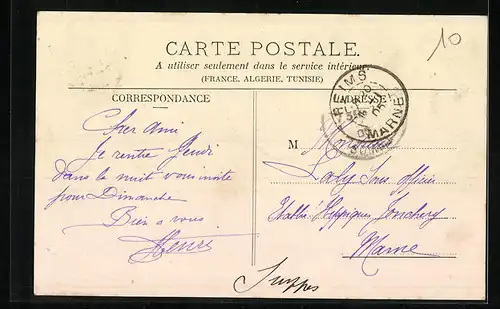 10
CARTE POSTALE.
A utiliser seulement dans le service intérieur
(FRANCE, ALGERIE, TUNISIE)
CORRESPONDANCE
ADRESSE
REIMS
MARNE
Cher ami
Je rentre Jeudi
dans la nuit vous invite
pour Dimanche
Bien a vous
Henri
M Monsieur
Sous officier
Hippiques Jonchery
Marne
Suippes